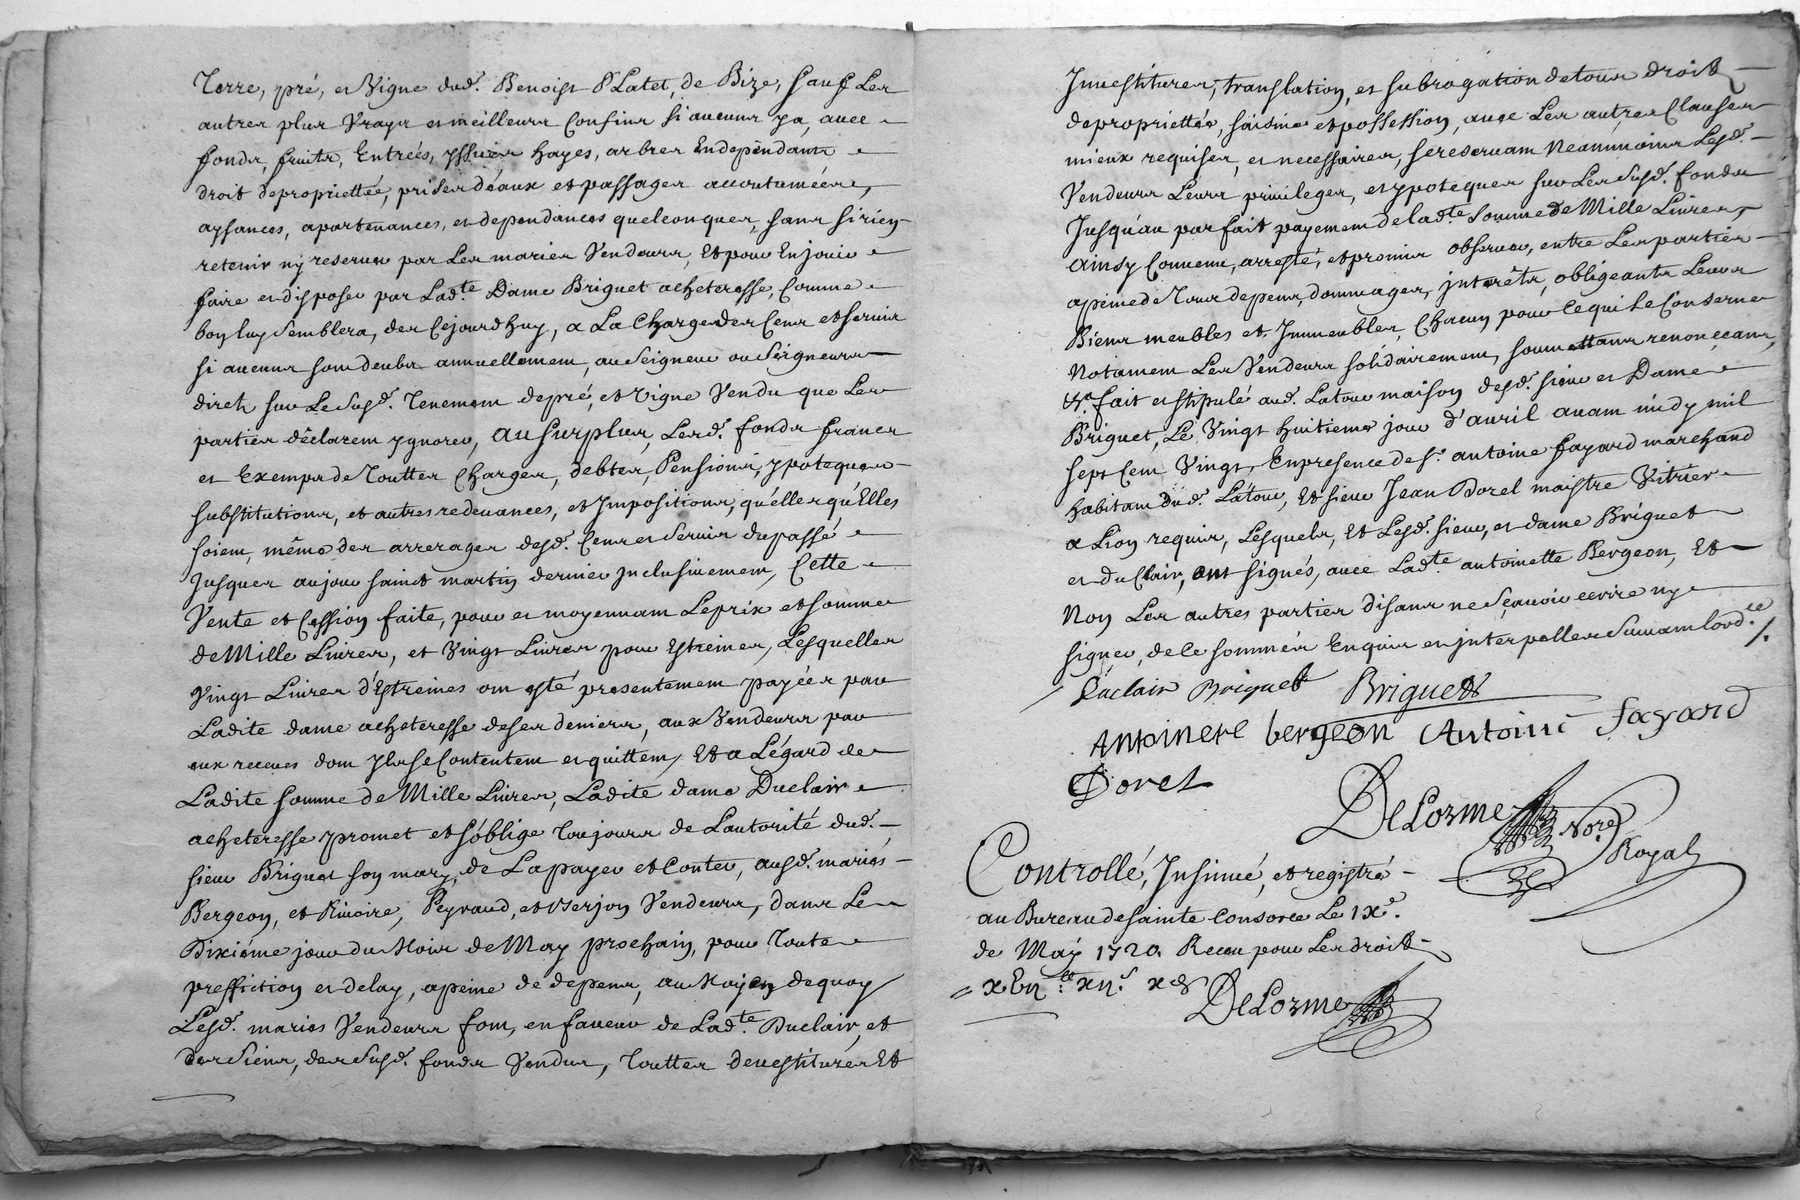 Terre, pré, et Vigne dud. Benoist P'Latet, de Bize, sauf Les
autres plus Vrays et meilleurs Confins si aucuns y a, avec
fonds, fruits, Entrées, yssües hayes, arbres Endépendants
droit de propriettée, prises d'éaux et passages accoutuméés,
aysances, apartenances, et dependances quelconques, sans si rien
retenir ny reserver par Les mariés Vendeurs, Et pour En jouir
faire et disposer par Lad.te Dame Briguet acheteresse, Comme
bon luy Semblera, des Cejourdhuy, a La Charge des Cens et servis
si aucuns sont deubs annuellement, au Seigneur ou Seigneurs
direts sur Le Susd. Tenement de pré, et Vigne Vendu que Les
parties déclarent ygnorer, au surplus, Lesd. fonds francs
et Exempts de Toutes Charges, debtes, Pensions, ypoteques
substitutions, et autres redevances, et Impositions, qu'elles qu'Elles
soient, même des arrerages desd. Cens et servis du passé
Jusques au jour sainct martin dernier Inclusivement, Cette
Vente et Cession faite, pour et moyennant Le prix et somme
de Mille Livres, et Vingt Livres pour Estreines, Lesquelles
Vingt Livres d'Estreines ont esté presentement payées par
Ladite dame acheteresse de ses deniers, aux Vendeurs par
eux receues dont Ils se Contentent et quittent, Et a Légard de
Ladite somme de Mille Livres, Ladite dame Duclair
acheteresse promet et s'oblige Toujours de Lautorité dud.
sieur Briguet son mary, de La payer et Conter, ausd. mariés
Bergeon, et Rivoire, Peyraud, et Verjon Vendeurs, dans Le
Dixiéme jour du Mois de May prochain, pour Toute
preffiction et delay, a peine de depens, au Moyen de quoy
Lesd. mariés Vendeurs font, en faveur de Lad.te Duclair, et
des Siens, des Susd. fonds Vendus, Touttes devestitures Et
Investitures, translation, et subrogation de tous droits
de propriettés, saisine et possession, avec Les autres Clauses
mieux requises, et necessaires, se reservant Neanmoins Lesd.
Vendeurs Leurs privileges, et ypoteques sur Les Susd. fonds
Jusqu'au parfait payement de lad.te Somme de Mille Livres,
Ainsy Convenu, arresté, et promis observer, entre Les parties
a peine de Tous depens, dommages, jnterêts, obligeants Leurs
Biens meubles et Immeubles, Chacun pour Ce qui Le Conserne
Notament Les Vendeurs solidairement, soumettans renonceans,
&.a fait et stipulé aud. Latour maison desd. sieur et Dame
Briguet, Le Vingt huitieme jour d'avril avant midy mil
sept Cent Vingt, En presence de s.r antoine fayard marchand
habitant dud. Latour, Et sieur Jean Dorel maistre Vitrier
a Lion requis, Lesquels, Et Lesd. sieur, et dame Briguet
et duClair, ont signés, avec Lad.te antoinette Bergeon, Et
Non Les autres parties disans ne Sçavoir ecrire ny
signer, de Ce sommés Enquis et jnterpellés Suivant lord.ce /.
Duclair Briguet Briguet
Antoinete bergeon Antoine fayard
Dorel
DeLorme Nore. Royal
Controllé, Insinué, et registré
au Bureau de sainte Consorce Le IXe.
de May 1720. Receu pour Les droits
DeLorme